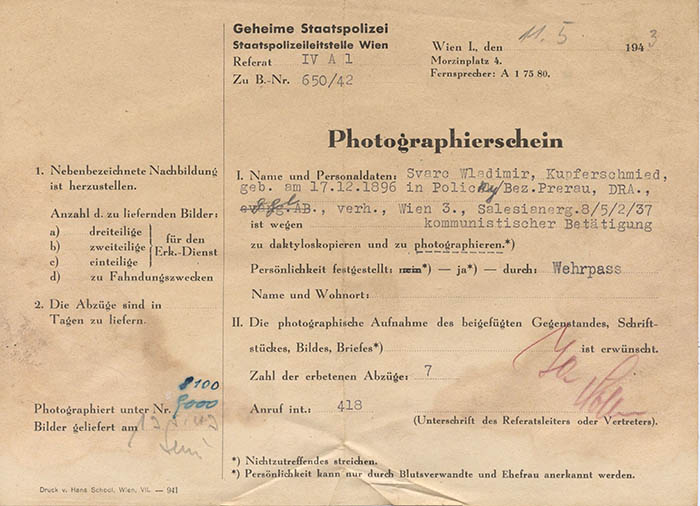 Geheime Staatspolizei
Staatspolizeileitstelle Wien
Referat IV A 1
Zu B.-Nr. 650/42
Wien I., den 11. 5 1943
Morzinplatz 4.
Fernsprecher: A 1 75 80.
Photographierschein
1. Nebenbezeichnete Nachbildung
ist herzustellen.
Anzahl d. zu liefernden Bilder:
a) dreiteilige
b) zweiteilige
c) einteilige
für den
Erk.-Dienst
d) zu Fahndungszwecken
2. Die Abzüge sind in
Tagen zu liefern.
Photographiert unter Nr. 8100
9000
Bilder geliefert am
I. Name und Personaldaten: Svarc Wladimir, Kupferschmied,
geb. am 17.12.1896 in Policky Bez.Prerau, DRA.,
ggl. AB., verh., Wien 3., Salesianerg.8/5/2/37
ist wegen kommunistischer Betätigung
zu daktyloskopieren und zu photographieren.*)
Persönlichkeit festgestellt: nein*) — ja*) — durch: Wehrpass
Name und Wohnort:
II. Die photographische Aufnahme des beigefügten Gegenstandes, Schrift-
stückes, Bildes, Briefes*) ist erwünscht.
Zahl der erbetenen Abzüge: 7
Anruf int.: 418
(Unterschrift des Referatsleiters oder Vertreters).
*) Nichtzutreffendes streichen.
*) Persönlichkeit kann nur durch Blutsverwandte und Ehefrau anerkannt werden.
Druck v. Hans School, Wien, VII. — 941